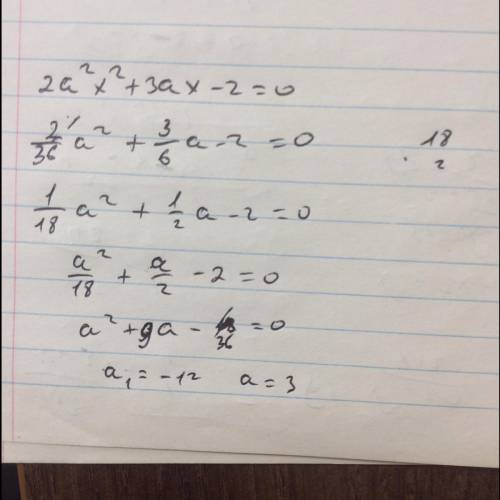 2a²x²+3ax-2=0
2/36 a² + 3/6 a-2 =0
18
2
1/18 a² + 1/2 a-2=0
a²/18 + a/2 -2=0
a²+9a- 36 =0
a₁=-12 a=3